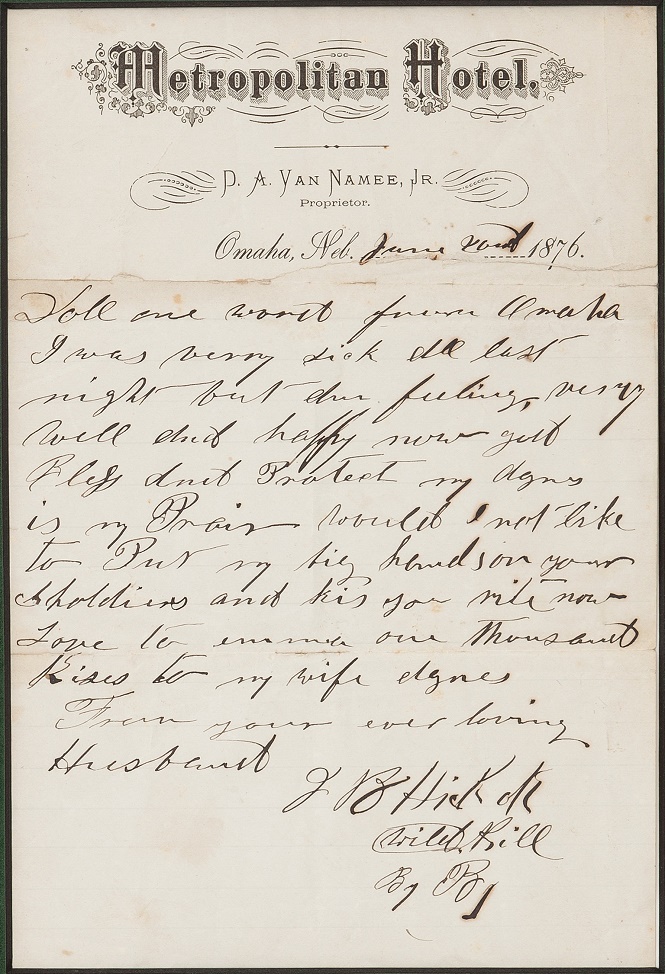 Metropolitan Hotel,
D. A. Van Namee, Jr.
Proprietor.
Omaha, Neb. June 1876.
one word from Omaha
I was verry sick all last
night but am feeling very
well and happy now god
Bless and Protect my Agnes
is my Prair would I not like
to Put my big hands on your
sholdiers and kis you rite now
Love to emma one Thousand
Kises to my wife Agnes
From your ever loving
Husband
J B Hickok
Wild Bill
By By